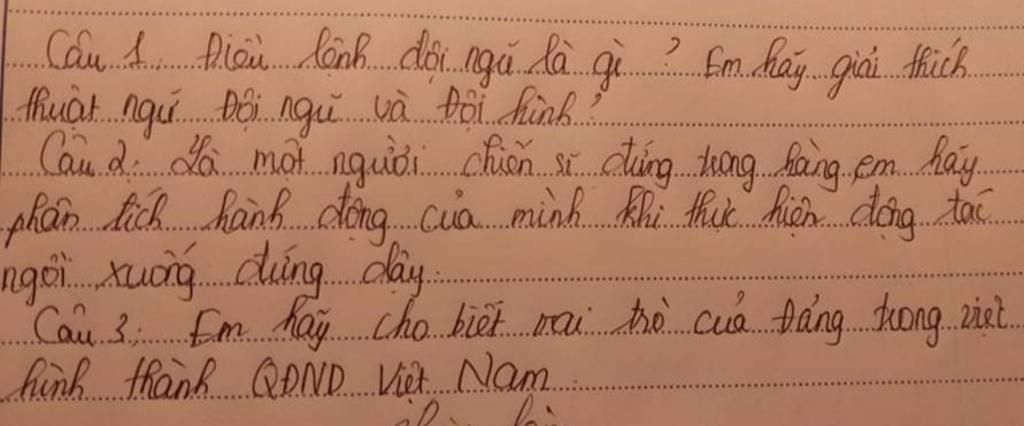 Câu 1. Điều lệnh đội ngũ là gì ? Em hãy giải thích
thuật ngữ Đội ngũ và Đội hình?
Câu 2: Là một người chiến sĩ đứng trong hàng em hãy
phân tích hành động của mình khi thực hiện động tác
ngồi xuống đứng dậy.
Câu 3: Em hãy cho biết vai trò của Đảng trong việt
hình thành QĐND Việt Nam.